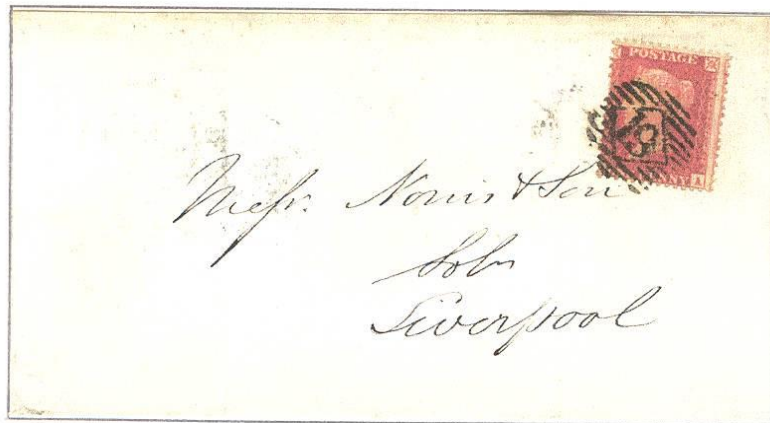 POSTAGE
Messrs Norris & Son
Solrs
Liverpool